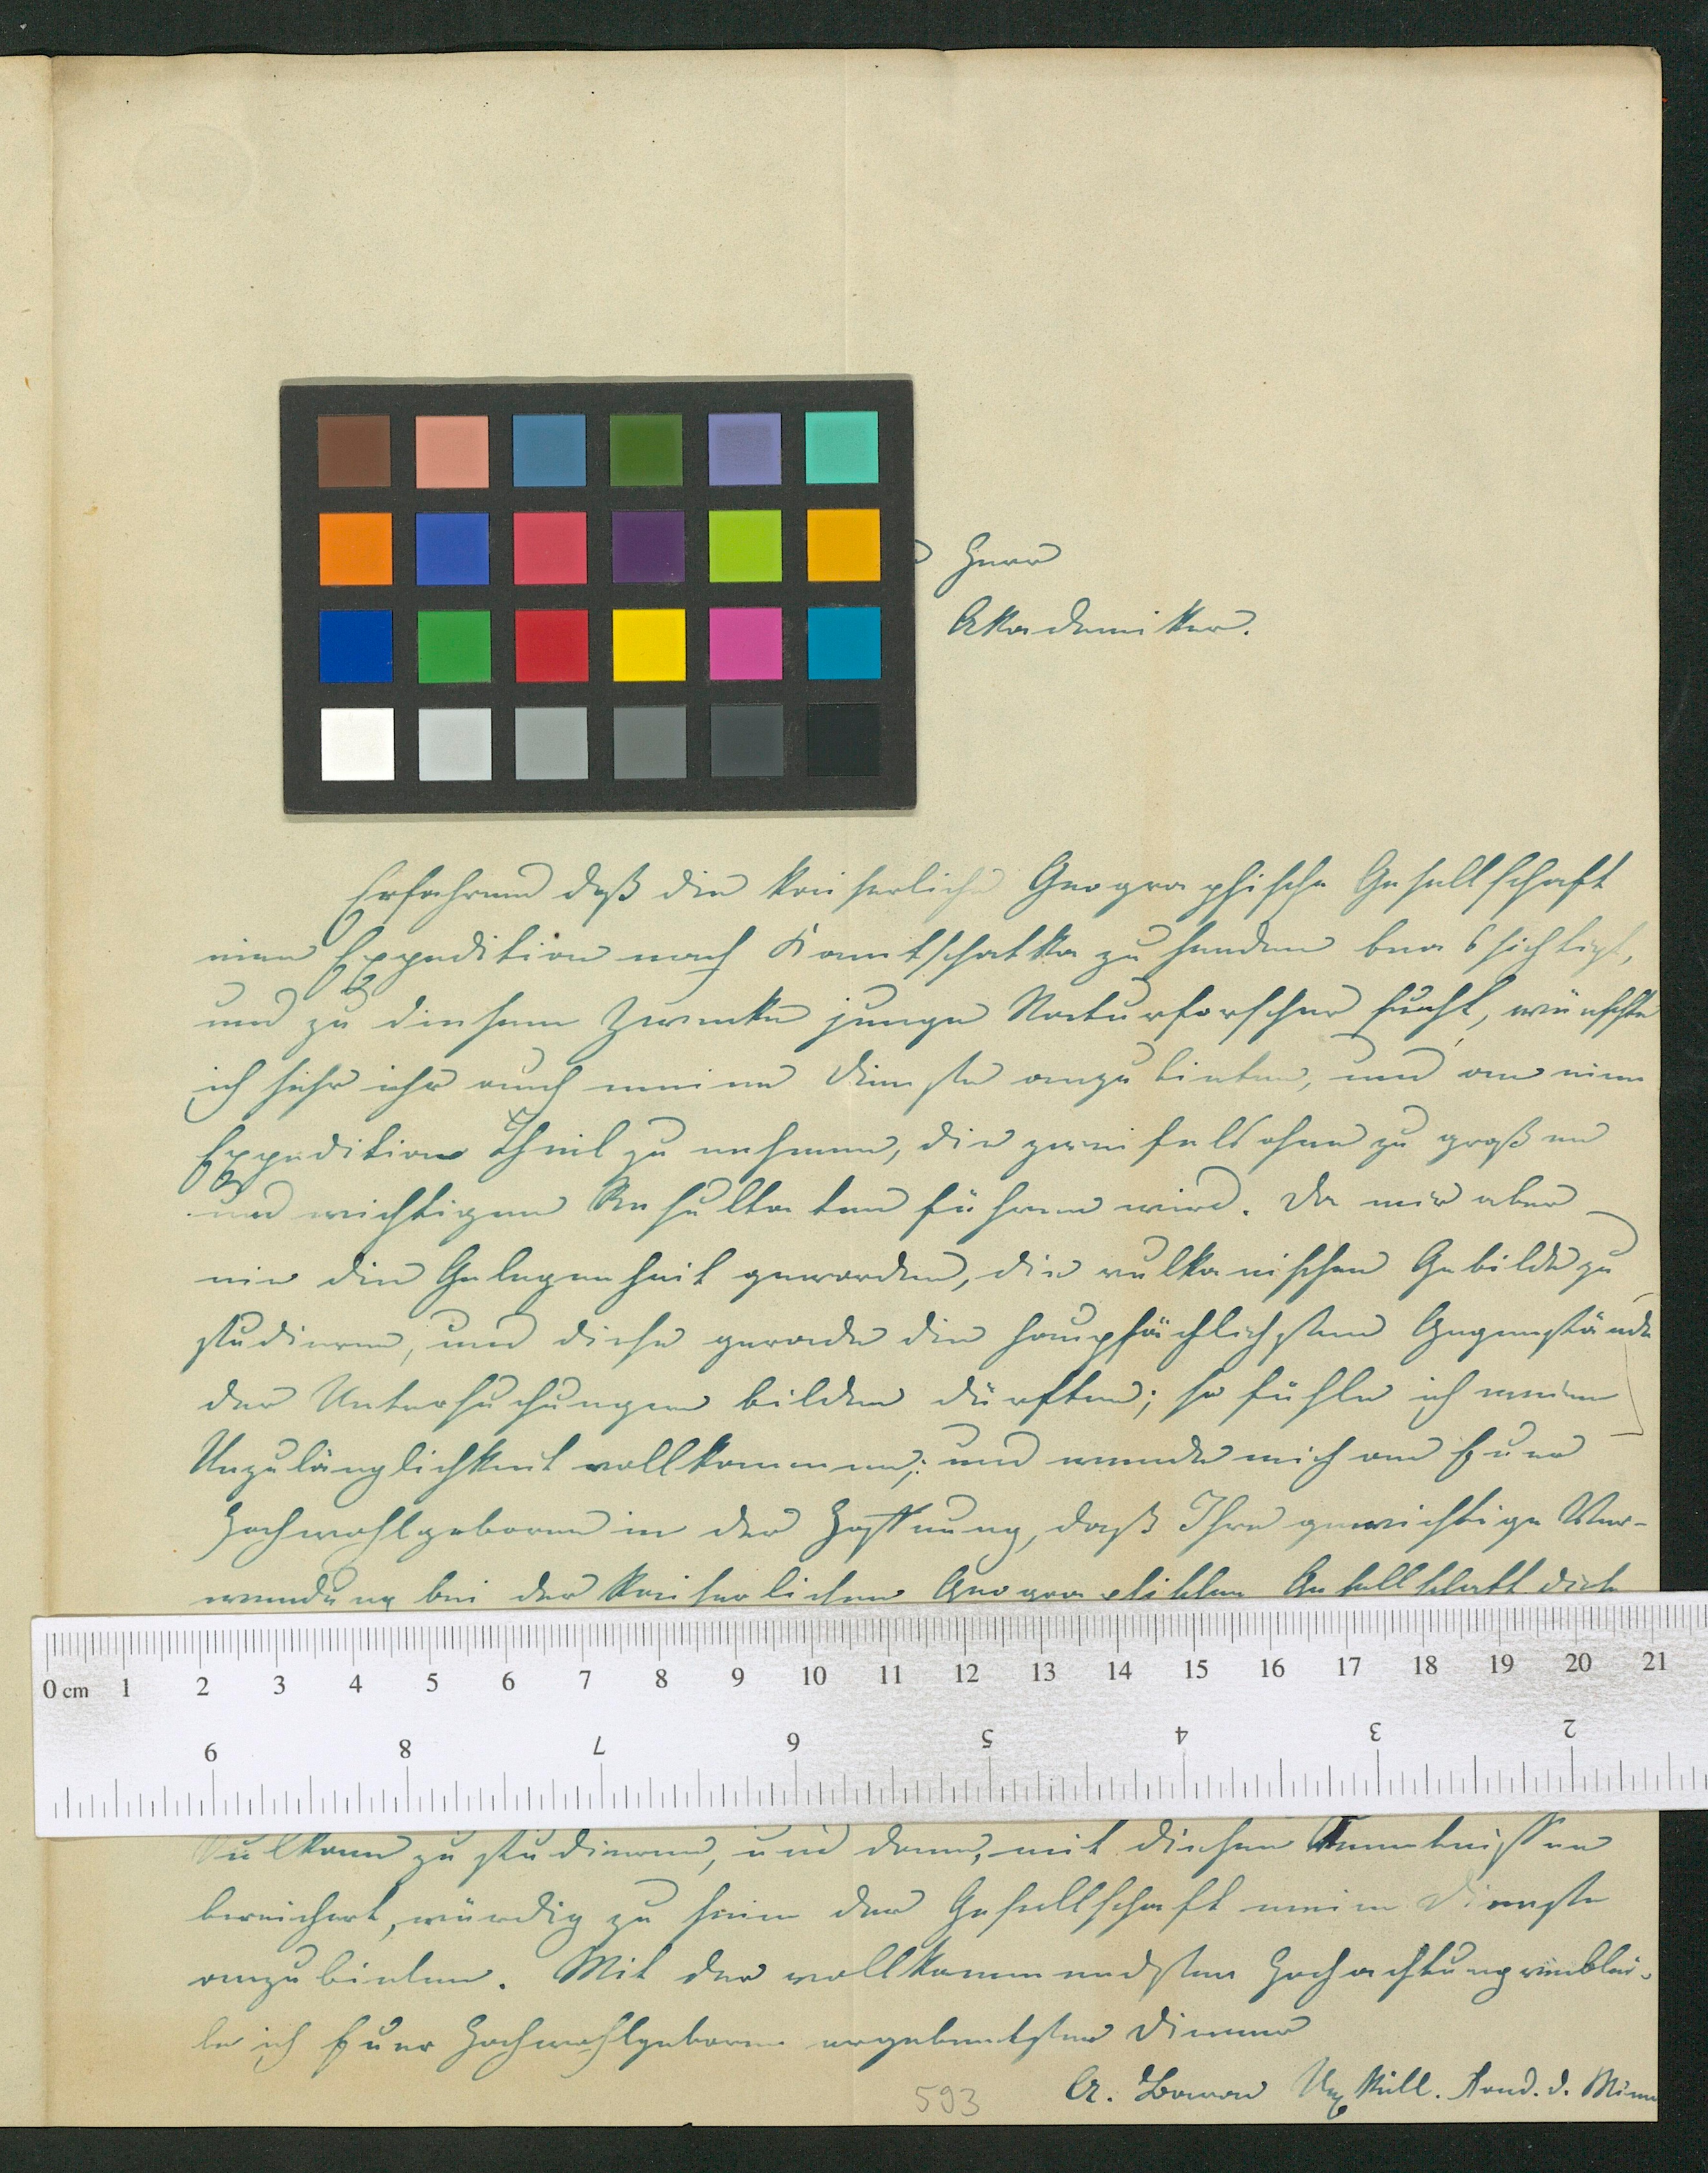 Herr
Akademiker.
Erfahrend daß die kaiserliche Geographische Gesellschaft
eine Expedition nach Kamtschatka zu senden beabsichtigt,
und zu diesem Zwecke junge Naturforscher sucht, wünschte
ich sehr ihr auch meine Dienste anzubieten, und an einer
Expedition Theil zu nehmen, die zweifelsohne zu großen
und wichtigen Resultaten führen wird. Da mir aber
nie die Gelegenheit geworden, die vulkanischen Gebilde zu
studieren, und diese gerade die haupsächlichsten Gegenstände
der Untersuchungen bilden dürften; so fühle ich meine
Unzulänglichkeit vollkommen; und wende mich an Euer
Hochwohlgeboren in der Hoffnung, daß Ihre gewichtige Ver-
wendung bei der kaiserlichen Geographischen Gesellschaft
0 cm 1 2 3 4 5 6 7 8 9 10 11 12 13 14 15 16 17 18 19 20 21
9 8 7 6 5 4 3 2
Vulkane zu studieren, und dann, mit diesen Kenntnissen
bereichert, würdig zu sein der Gesellschaft meine Dienste
anzubieten. Mit der vollkommendsten Hochachtung
be ich Euer Hochwohlgeboren ergebendster Diener
A. Baron Uexküll. Kand. d. Mine
593